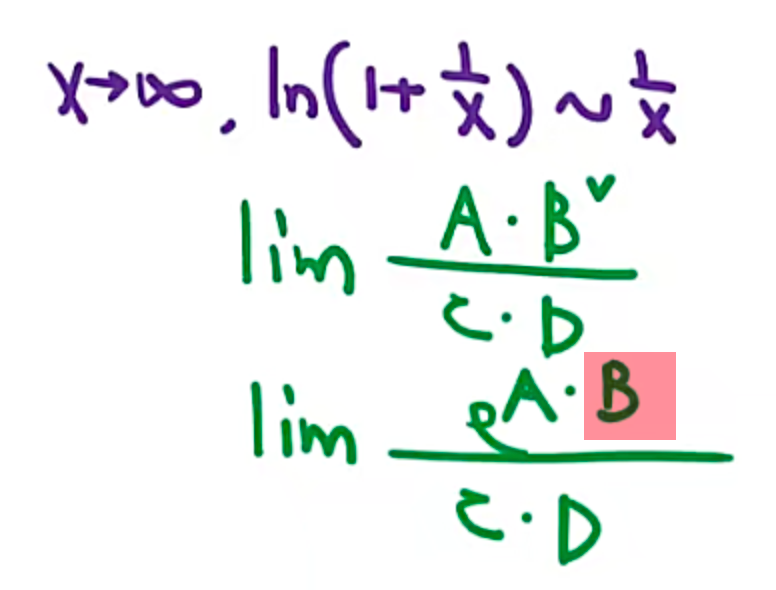 x→∞. ln(1+1/x) ~ 1/x
lim A·B✓ / C·D
lim e^(A·B) / C·D